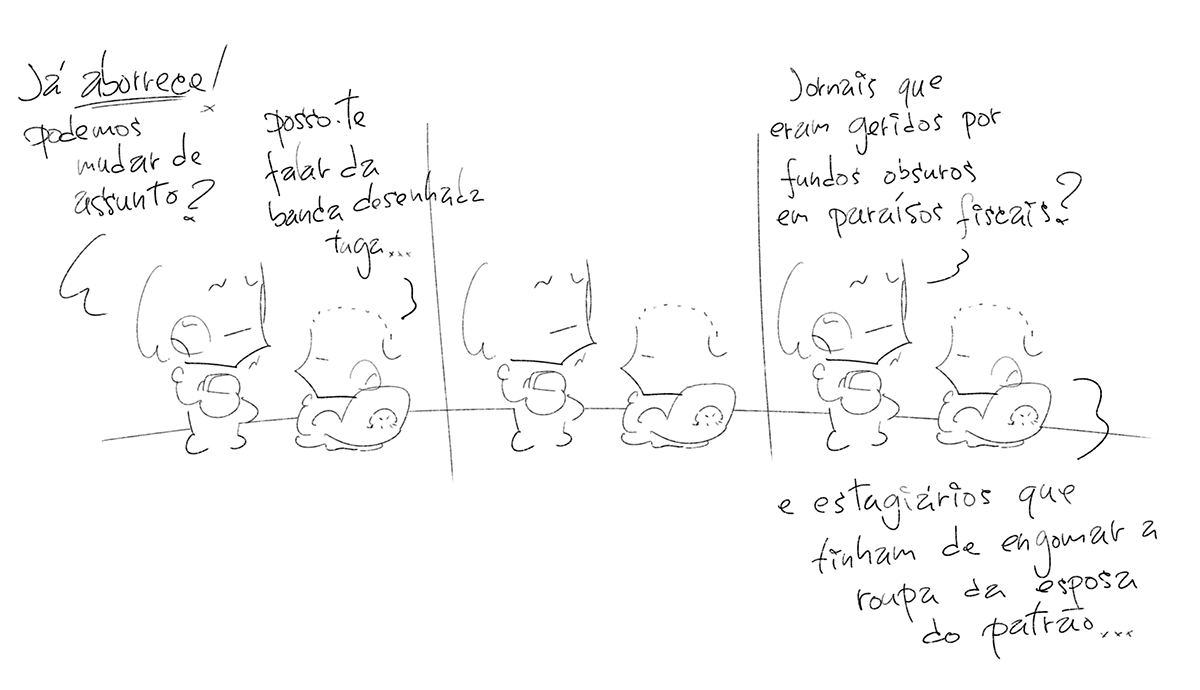 Já aborrece!
podemos
mudar de
assunto?
posso-te
falar da
banda desenhada
tuga...
Jornais que
eram geridos por
fundos obsuros
em paraísos fiscais?
e estagiários que
tinham de engomar a
roupa da esposa
do patrão...